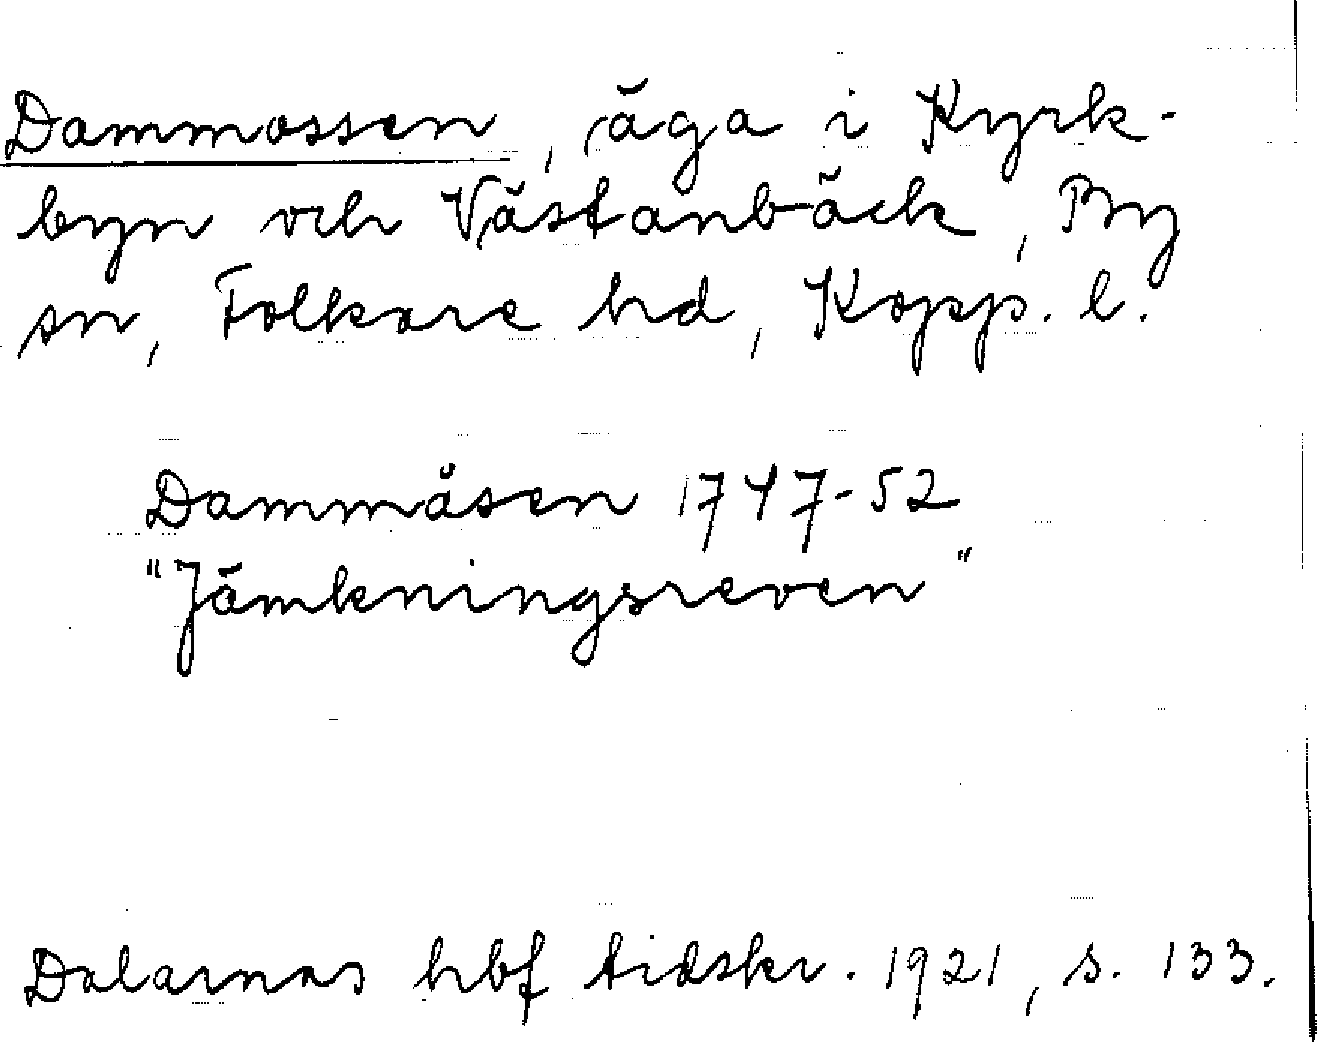 Dammossen, äga i Kyrk-
byn och Västanbäck, By
sn, Folkare hd, Kopp. l.
Dammåsen 1747-52
"Jämkningsreven"
Dalarnas hbf tidskr. 1921, s. 133.